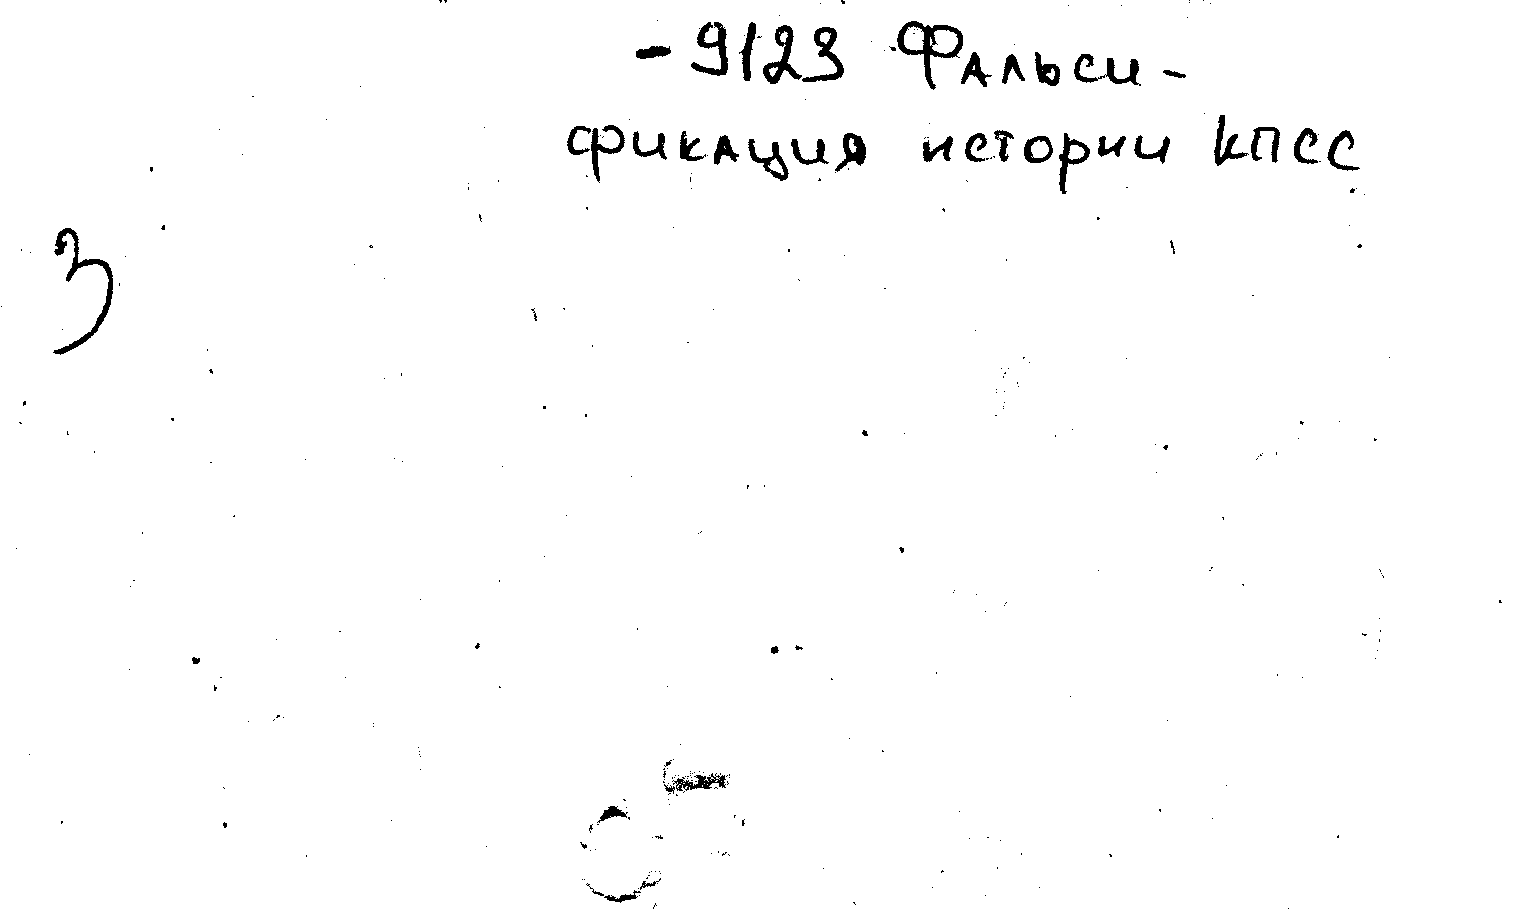 -9123 Фальси-
фикация истории КПСС
3